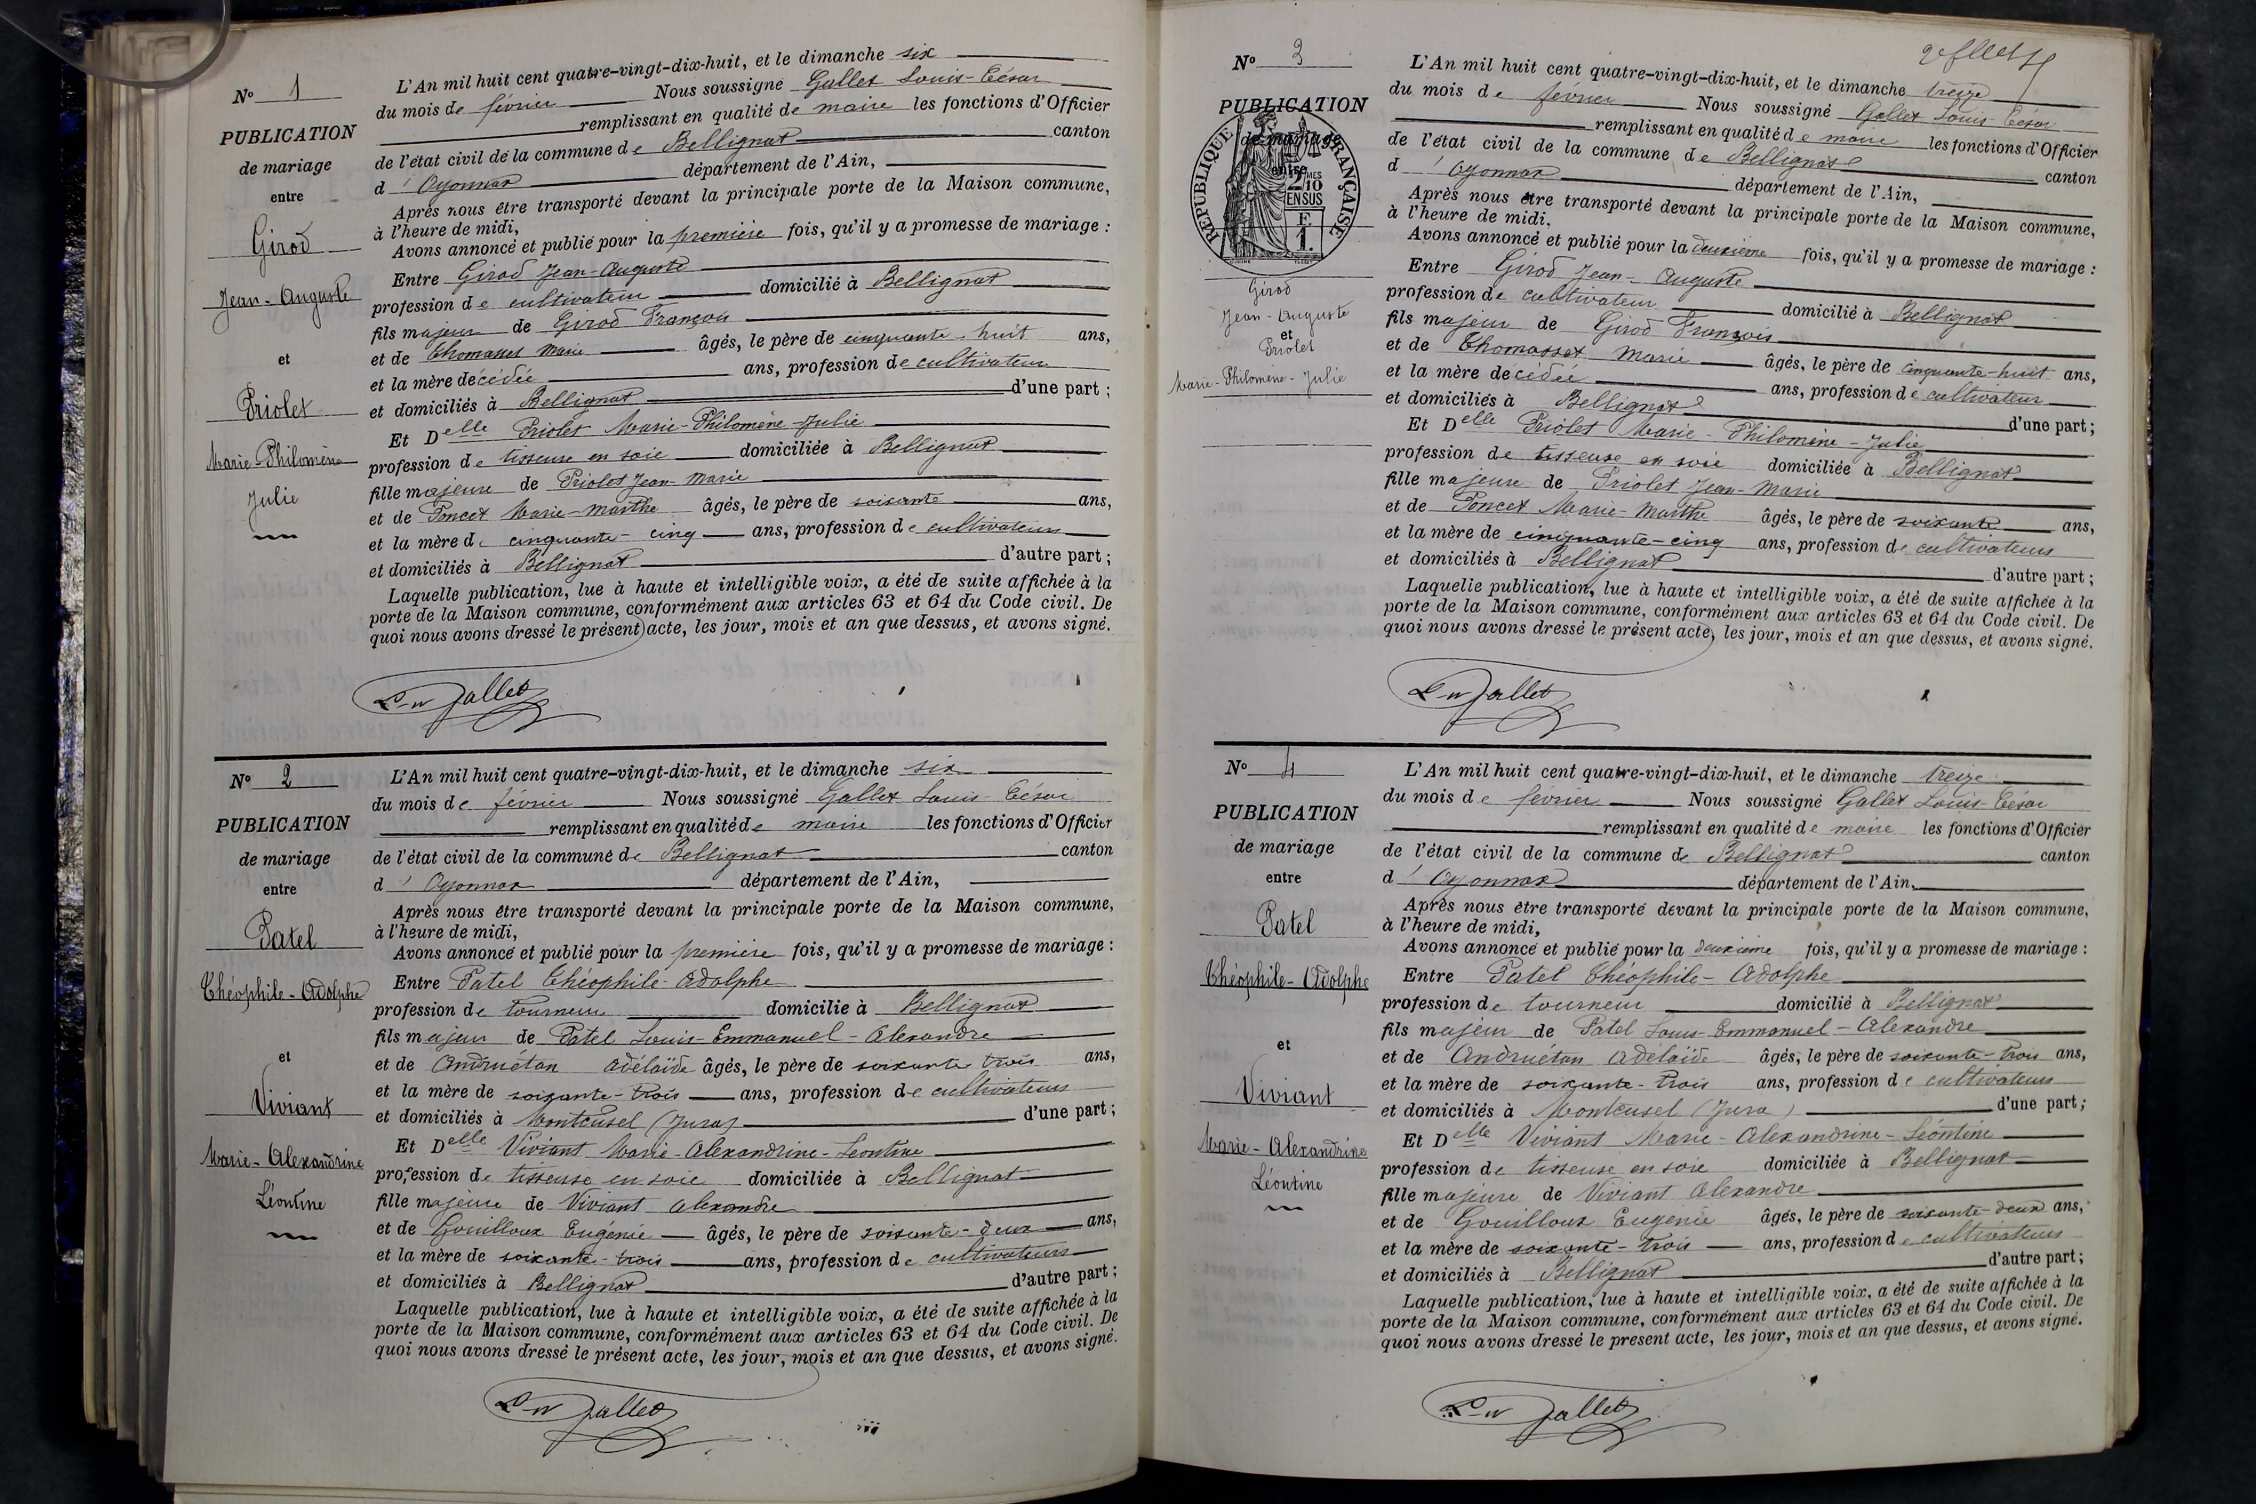 N° 1
PUBLICATION
de mariage
entre
Girod
Jean-Auguste
et
Priolet
Marie-Philomène
Julie
L'An mil huit cent quatre-vingt-dix-huit, et le dimanche six
du mois de février Nous soussigné Gallet Louis-César
remplissant en qualité de maire les fonctions d'Officier
de l'état civil de la commune de Bellignat canton
d'Oyonnax département de l'Ain,
Après nous être transporté devant la principale porte de la Maison commune,
à l'heure de midi,
Avons annoncé et publié pour la première fois, qu'il y a promesse de mariage :
Entre Girod Jean-Auguste
profession de cultivateur domicilié à Bellignat
fils majeur de Girod François
et de Thomasset Marie âgés, le père de cinquante-huit ans,
et la mère décédée ans, profession de cultivateur
et domiciliés à Bellignat d'une part ;
Et Delle Priolet Marie-Philomène-Julie
profession de tisseuse en soie domiciliée à Bellignat
fille majeure de Priolet Jean-Marie
et de Poncet Marie-Marthe âgés, le père de soixante ans,
et la mère de cinquante-cinq ans, profession de cultivateurs
et domiciliés à Bellignat d'autre part ;
Laquelle publication, lue à haute et intelligible voix, a été de suite affichée à la
porte de la Maison commune, conformément aux articles 63 et 64 du Code civil. De
quoi nous avons dressé le présent acte, les jour, mois et an que dessus, et avons signé.
Gallet
N° 2
PUBLICATION
de mariage
entre
Patel
Théophile-Adolphe
et
Viviant
Marie-Alexandrine
Léontine
L'An mil huit cent quatre-vingt-dix-huit, et le dimanche six
du mois de février Nous soussigné Gallet Louis-César
remplissant en qualité de maire les fonctions d'Officier
de l'état civil de la commune de Bellignat canton
d'Oyonnax département de l'Ain,
Après nous être transporté devant la principale porte de la Maison commune,
à l'heure de midi,
Avons annoncé et publié pour la première fois, qu'il y a promesse de mariage :
Entre Patel Théophile-Adolphe
profession de tourneur domicilié à Bellignat
fils majeur de Patel Louis-Emmanuel-Alexandre
et de Andruétan Adélaïde âgés, le père de soixante trois ans,
et la mère de soixante-trois ans, profession de cultivateurs
et domiciliés à Montcusel (Jura) d'une part ;
Et Delle Viviant Marie-Alexandrine-Léontine
profession de tisseuse en soie domiciliée à Bellignat
fille majeure de Viviant Alexandre
et de Gouilloux Eugénie âgés, le père de soixante-deux ans,
et la mère de soixante-trois ans, profession de cultivateurs
et domiciliés à Bellignat d'autre part ;
Laquelle publication, lue à haute et intelligible voix, a été de suite affichée à la
porte de la Maison commune, conformément aux articles 63 et 64 du Code civil. De
quoi nous avons dressé le présent acte, les jour, mois et an que dessus, et avons signé.
Gallet
N° 3
PUBLICATION
de mariage
entre
RÉPUBLIQUE FRANÇAISE
2 MES
10
EN SUS
F
1.
Girod
Jean-Auguste
et
Priolet
Marie-Philomène-Julie
L'An mil huit cent quatre-vingt-dix-huit, et le dimanche treize
du mois de février Nous soussigné Gallet Louis-César
remplissant en qualité de maire les fonctions d'Officier
de l'état civil de la commune de Bellignat canton
d'Oyonnax département de l'Ain,
Après nous être transporté devant la principale porte de la Maison commune,
à l'heure de midi,
Avons annoncé et publié pour la deuxième fois, qu'il y a promesse de mariage :
Entre Girod Jean-Auguste
profession de cultivateur domicilié à Bellignat
fils majeur de Girod François
et de Thomasset Marie âgés, le père de cinquante-huit ans,
et la mère décédée ans, profession de cultivateur
et domiciliés à Bellignat d'une part ;
Et Delle Priolet Marie-Philomène-Julie
profession de tisseuse en soie domiciliée à Bellignat
fille majeure de Priolet Jean-Marie
et de Poncet Marie-Marthe âgés, le père de soixante ans,
et la mère de cinquante-cinq ans, profession de cultivateurs
et domiciliés à Bellignat d'autre part ;
Laquelle publication, lue à haute et intelligible voix, a été de suite affichée à la
porte de la Maison commune, conformément aux articles 63 et 64 du Code civil. De
quoi nous avons dressé le présent acte, les jour, mois et an que dessus, et avons signé.
Gallet
N° 4
PUBLICATION
de mariage
entre
Patel
Théophile-Adolphe
et
Viviant
Marie-Alexandrine
Léontine
L'An mil huit cent quatre-vingt-dix-huit, et le dimanche treize
du mois de février Nous soussigné Gallet Louis-César
remplissant en qualité de maire les fonctions d'Officier
de l'état civil de la commune de Bellignat canton
d'Oyonnax département de l'Ain,
Après nous être transporté devant la principale porte de la Maison commune,
à l'heure de midi,
Avons annoncé et publié pour la deuxième fois, qu'il y a promesse de mariage :
Entre Patel Théophile-Adolphe
profession de tourneur domicilié à Bellignat
fils majeur de Patel Louis-Emmanuel-Alexandre
et de Andruétan Adélaïde âgés, le père de soixante-trois ans,
et la mère de soixante-trois ans, profession de cultivateurs
et domiciliés à Montcusel (Jura) d'une part ;
Et Delle Viviant Marie-Alexandrine-Léontine
profession de tisseuse en soie domiciliée à Bellignat
fille majeure de Viviant Alexandre
et de Gouilloux Eugénie âgés, le père de soixante-deux ans,
et la mère de soixante-trois ans, profession de cultivateurs
et domiciliés à Bellignat d'autre part ;
Laquelle publication, lue à haute et intelligible voix, a été de suite affichée à la
porte de la Maison commune, conformément aux articles 63 et 64 du Code civil. De
quoi nous avons dressé le present acte, les jour, mois et an que dessus, et avons signé.
Gallet